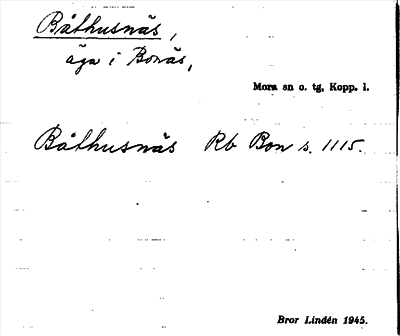 Båthusnäs,
äga i Bonäs,
Mora sn o. tg, Kopp. l.
Båthusnäs Rb Bon s. 1115.
Bror Lindén 1945.